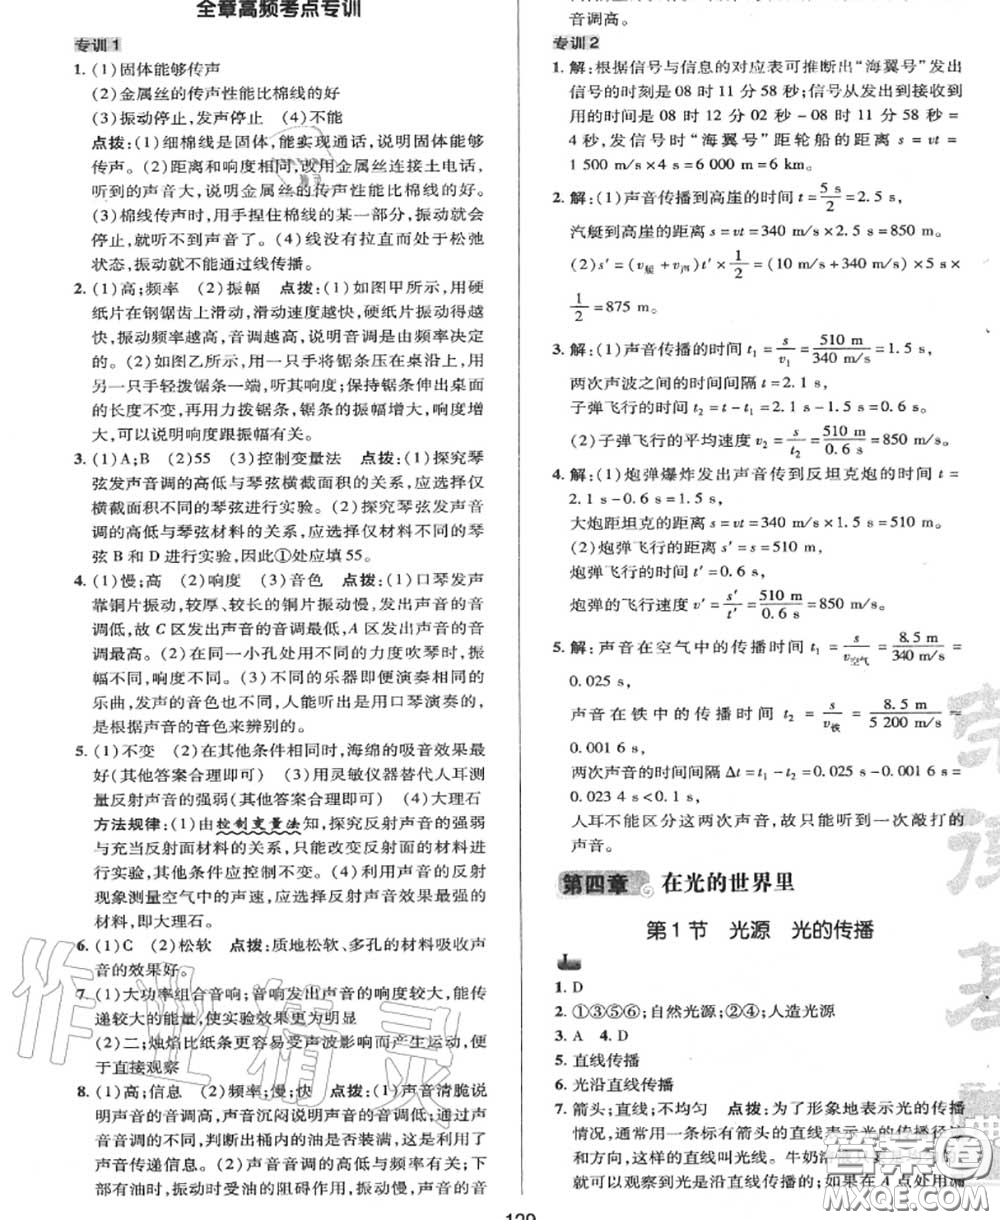 全章高频考点专训
专训1
1. (1)固体能够传声
(2)金属丝的传声性能比棉线的好
(3)振动停止,发声停止 (4)不能
点拨:(1)细棉线是固体,能实现通话,说明固体能够
传声。(2)距离和响度相同,改用金属丝连接土电话,
听到的声音大,说明金属丝的传声性能比棉线的好。
(3)棉线传声时,用手捏住棉线的某一部分,振动就会停
止,就听不到声音了。(4)线没有拉直而处于松弛
状态,振动就不能通过线传播。
2. (1)高;频率 (2)振幅 点拨:(1)如图甲所示,用硬
纸片在钢锯齿上滑动,滑动速度越快,硬纸片振动得越
快,振动频率越高,音调越高,说明音调是由频率决定
的。(2)如图乙所示,用一只手将锯条压在桌沿上,用
另一只手轻拨锯条一端,听其响度;保持锯条伸出桌面
的长度不变,再用力拨锯条,锯条的振幅增大,响度增
大,可以说明响度跟振幅有关。
3. (1)A;B (2)55 (3)控制变量法 点拨:(1)探究琴
弦发声音调的高低与琴弦横截面积的关系,应选择仅
横截面积不同的琴弦进行实验。(2)探究琴弦发声音
调的高低与琴弦材料的关系,应选择仅材料不同的琴
弦 B 和 D 进行实验,因此①处应填 55。
4. (1)慢;高 (2)响度 (3)音色 点拨:(1)口琴发声
靠铜片振动,较厚、较长的铜片振动慢,发出声音的音
调低,故 C 区发出声音的音调最低,A 区发出声音的
音调最高。(2)在同一小孔处用不同的力度吹琴时,振
幅不同,响度不同。(3)不同的乐器即便演奏同样的
乐曲,发声的音色也不同,人能听出是用口琴演奏的,
是根据声音的音色来辨别的。
5. (1)不变 (2)在其他条件相同时,海绵的吸音效果最
好(其他答案合理即可) (3)用灵敏仪器替代人耳测
量反射声音的强弱(其他答案合理即可) (4)大理石
方法规律:(1)由控制变量法知,探究反射声音的强弱
与充当反射面材料的关系,只能改变反射面的材料,
其他条件应控制不变。(4)根据回声即声音的反射
现象测量空气中的声速,应选择反射声音效果最好的
材料,即大理石。
6. (1)C (2)松软 点拨:质地松软、多孔的材料吸收声
音的效果好。
7. (1)大功率组合音响;音响发出声音的响度较大,能传
递较大的能量,使实验效果更为明显
(2)二;烛焰比纸条更容易受声波影响而产生运动,便
于直接观察
8. (1)高;信息 (2)频率;慢;快 点拨:(1)声音清脆说
明声音的音调高,声音沉闷说明声音的音调低,通过声
音音调的不同,判断出桶内的油是否装满,这是利用
声音传递信息。(2)声音音调的高低与频率有关;下
部有油,振动时受油的阻碍作用,振动慢,声音的音
音调高。
专训2
1. 解:根据信号与信息的对应表可推断出“海翼号”发出
信号的时刻是 08 时 11 分 58 秒;信号从发出到接收到
用的时间是 08 时 12 分 02 秒－08 时 11 分 58 秒＝
4 秒,发信号时“海翼号”距轮船的距离 s＝vt＝
1 500 m/s×4 s＝6 000 m＝6 km。
2. 解:(1)声音传播到高崖的时间 t＝5 s/2＝2.5 s,
汽艇到高崖的距离 s＝vt＝340 m/s×2.5 s＝850 m。
(2)s′＝(v艇＋v声)t′×1/2＝(10 m/s＋340 m/s)×5 s×
1/2＝875 m。
3. 解:(1)声音传播的时间 t₁＝s/v₁＝510 m/340 m/s＝1.5 s,
两次声波之间的时间间隔 t＝2.1 s,
子弹飞行的时间 t₂＝t－t₁＝2.1 s－1.5 s＝0.6 s。
(2)子弹飞行的平均速度 v₂＝s/t₂＝510 m/0.6 s＝850 m/s。
4. 解:(1)炮弹爆炸发出声音传到反坦克炮的时间 t＝
2.1 s－0.6 s＝1.5 s,
大炮距坦克的距离 s＝vt＝340 m/s×1.5 s＝510 m。
(2)炮弹飞行的距离 s′＝s＝510 m,
炮弹飞行的时间 t′＝0.6 s,
炮弹的飞行速度 v′＝s′/t′＝510 m/0.6 s＝850 m/s。
5. 解:声音在空气中的传播时间 t₁＝s/v空气＝8.5 m/340 m/s＝
0.025 s,
声音在铁中的传播时间 t₂＝s/v铁＝8.5 m/5 200 m/s≈
0.001 6 s,
两次声音的时间间隔 Δt＝t₁－t₂＝0.025 s－0.001 6 s＝
0.023 4 s＜0.1 s,
人耳不能区分这两次声音,故只能听到一次敲打的
声音。
第四章 在光的世界里
第1节 光源 光的传播
1. D
2. ①③⑤⑥;自然光源;②④;人造光源
3. A 4. D
5. 直线传播
6. 光沿直线传播
7. 箭头;直线;不均匀 点拨:为了形象地表示光的传播
情况,通常用一条标有箭头的直线表示光的传播径迹
和方向,这样的直线叫光线。
可以观察到光是沿直线传播的;如果在 A 点处用漏
129
作业精灵
答案圈
MXQE.COM